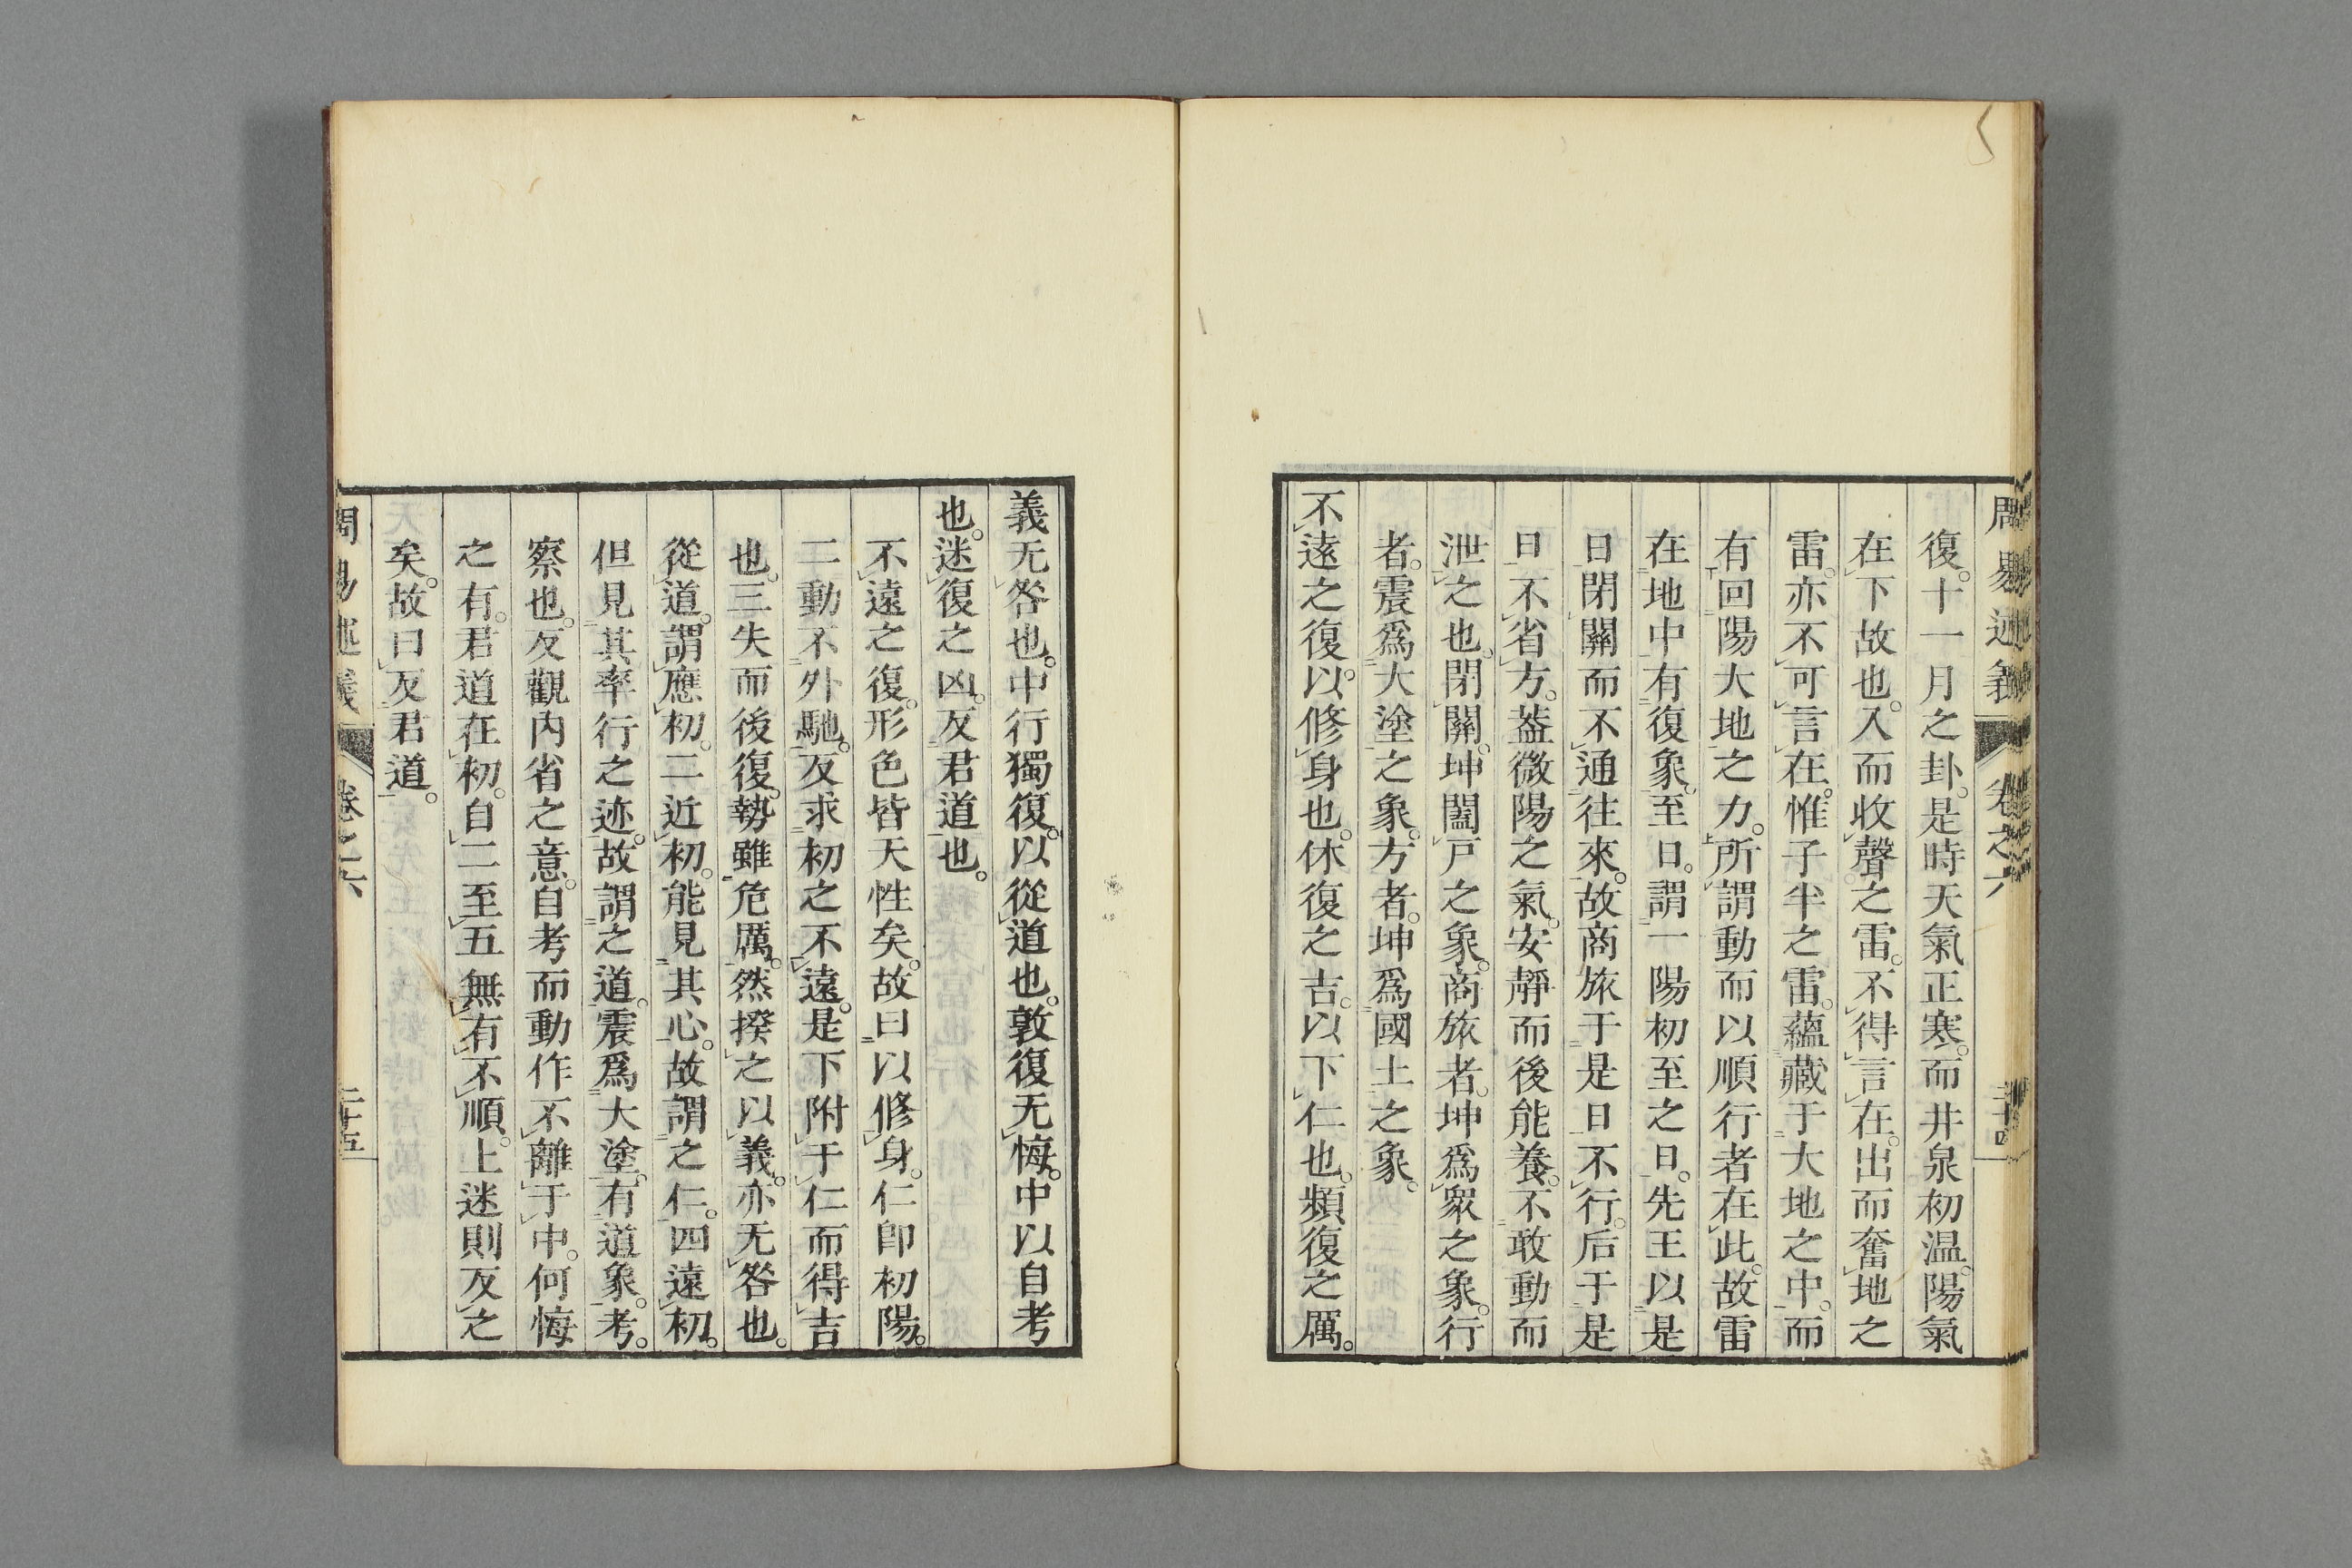 周易述義 卷之六 二十四
復。十一月之卦。是時天氣正寒。而井泉初温。陽氣
在下故也。入而收聲之雷。不得言在。出而奮地之
雷。亦不可言在。惟子半之雷。蘊藏于大地之中。而
有回陽大地之力。所謂動而以順行者在此。故雷
在地中有復象。至日。謂一陽初至之日。先王以是
日閉關而不通往來。故商旅于是日不行。后于是
日不省方。葢微陽之氣。安靜而後能養。不敢動而
泄之也。閉關。坤闔戸之象。商旅者。坤爲衆之象。行
者。震爲大塗之象。方者。坤爲國土之象。
不遠之復。以修身也。休復之吉。以下仁也。頻復之厲。
義无咎也。中行獨復。以從道也。敦復无悔。中以自考
也。迷復之凶。反君道也。
不遠之復。形色皆天性矣。故曰以修身。仁卽初陽。
二動不外馳。反求初之不遠。是下附于仁而得吉
也。三失而後復。勢雖危厲。然揆之以義。亦无咎也。
從道。謂應初。二近初。能見其心。故謂之仁。四遠初。
但見其率行之迹。故謂之道。震爲大塗。有道象。考。
察也。反觀内省之意。自考而動作不離于中。何悔
之有。君道在初。自二至五無有不順。上迷則反之
矣。故曰反君道。
周易述義 卷之六 二十五